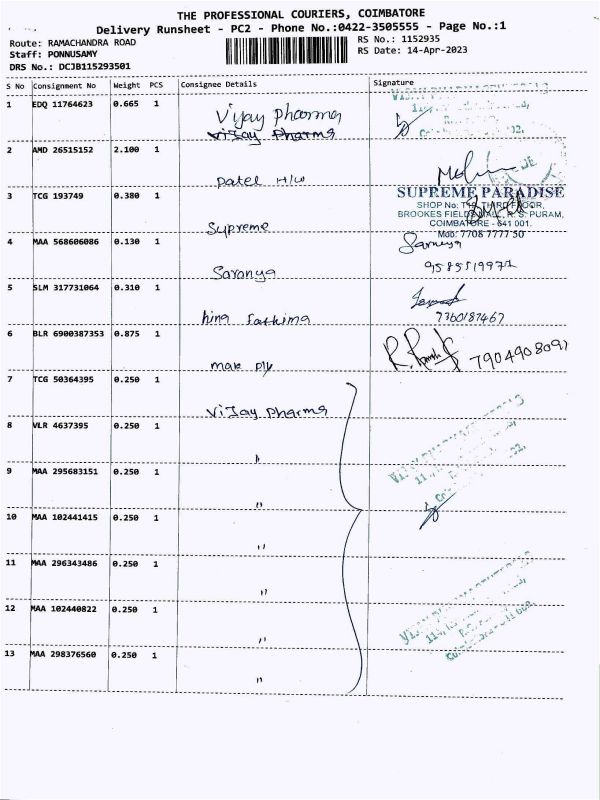 THE PROFESSIONAL COURIERS, COIMBATORE
Delivery Runsheet - PC2 - Phone No.:0422-3505555 - Page No.:1
Route: RAMACHANDRA ROAD
Staff: PONNUSAMY
DRS No.: DCJB115293501
RS No.: 1152935
RS Date: 14-Apr-2023
S No Consignment No Weight PCS Consignee Details Signature
1 EDQ 11764623 0.665 1 Vijay pharma
Vijay Pharma
2 AMD 26515152 2.100 1
Patel H/W
3 TCG 193749 0.380 1
Supreme
SUPREME PARADISE
SHOP No: T19, THIRD FLOOR,
BROOKES FIELDS MALL, R. S. PURAM,
COIMBATORE - 641 001.
Mob: 7708 7777 50
4 MAA 568606086 0.130 1
Saranya
Saranya
9585519971
5 SLM 317731064 0.310 1
hina Fathima
7360187467
6 BLR 6900387353 0.875 1
mak ply
7904908097
7 TCG 50364395 0.250 1
ViJay pharma
8 VLR 4637395 0.250 1
"
9 MAA 295683151 0.250 1
"
10 MAA 102441415 0.250 1
"
11 MAA 296343486 0.250 1
"
12 MAA 102440822 0.250 1
"
13 MAA 298376560 0.250 1
"